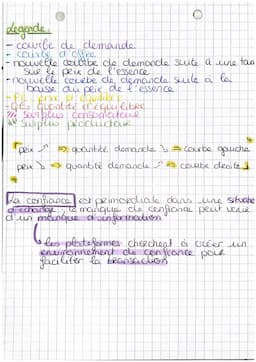 Légende:
- courbe de demande
- courbe d'offre
- nouvelle courbe de demande suite à une
sur le prix de l'essence
- nouvelle courbe de demande suite à la
baisse du prix de l'essence
- PE: prix d'équilibre
- QE: quantité d'équilibre
/// surplus consommateur
/// surplus producteur
prix ↗ ⇒ quantité demande ↘ ⇒ courbe gauche
prix ↘ ⇒ quantité demande ↗ ⇒ courbe droite
La confiance est primordiale dans une
d'échange, le manque de confiance peut venir
d'un manque d'information
↳ les plateformes cherchent à créer un
environnement de confiance pour
faciliter la transaction